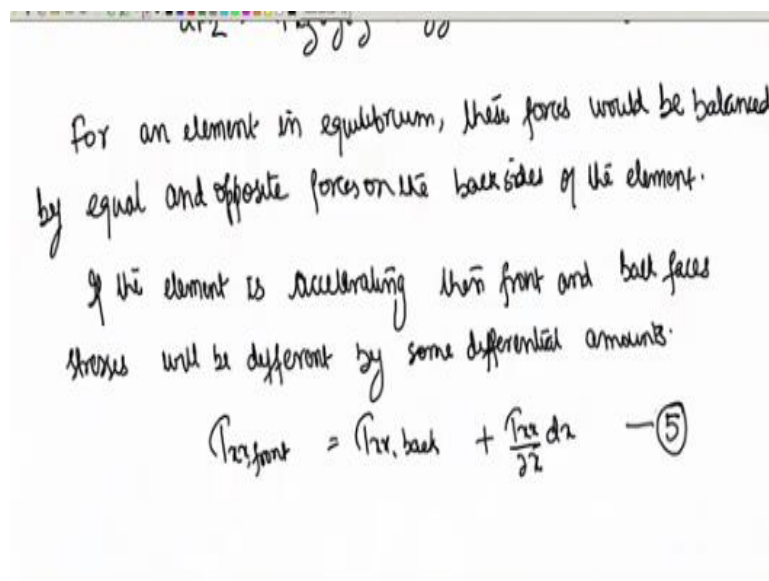 for an element in equilibrum, these forces would be balanced
by equal and opposite forces on the back sides of the element.
If the element is accelerating then front and back faces
stresses will be different by some differential amounts.
τxx,front = τxx,back + τxx/∂x dx — ⑤